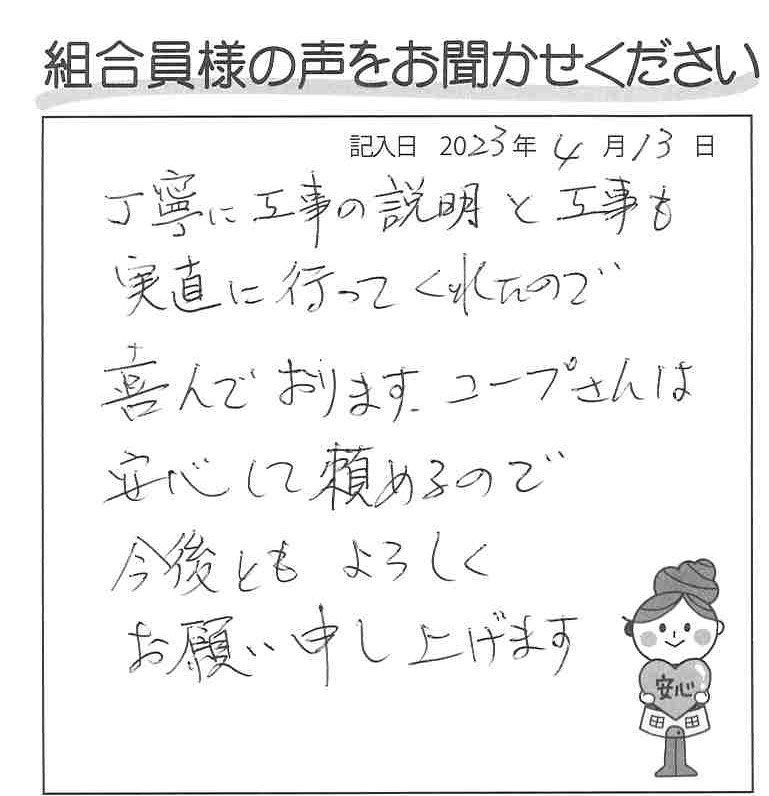 組合員様の声をお聞かせください
記入日 2023年 4月13日
丁寧に工事の説明と工事も
実直に行ってくれたので
喜んでおります。コープさんは
安心して頼めるので
今後ともよろしく
お願い申し上げます
安心